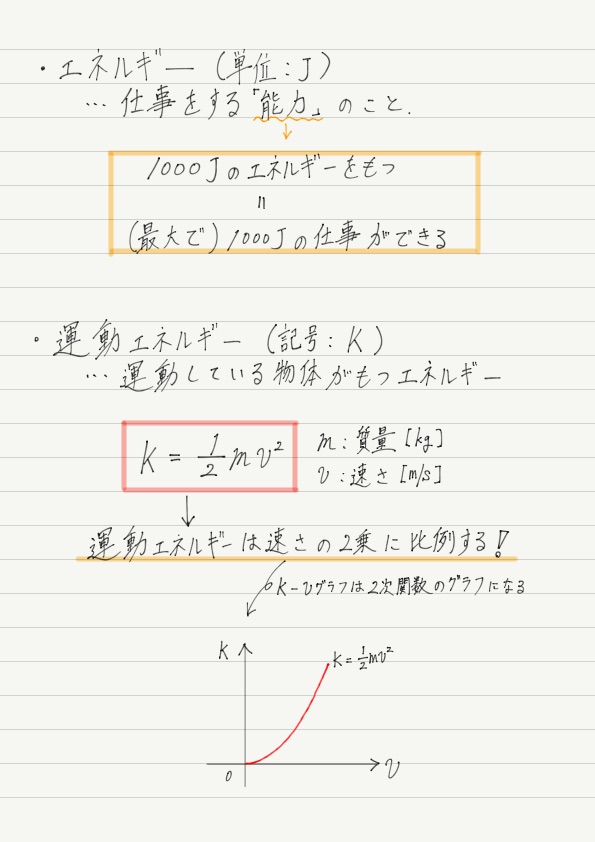 ・エネルギー（単位：J）
… 仕事をする「能力」のこと.
1000Jのエネルギーをもつ
=
(最大で) 1000Jの仕事ができる
・運動エネルギー（記号：K）
… 運動している物体がもつエネルギー
K = 1/2 mv²
m：質量 [kg]
v：速さ [m/s]
運動エネルギーは速さの2乗に比例する！
K-vグラフは2次関数のグラフになる
K
K=1/2mv²
0
v